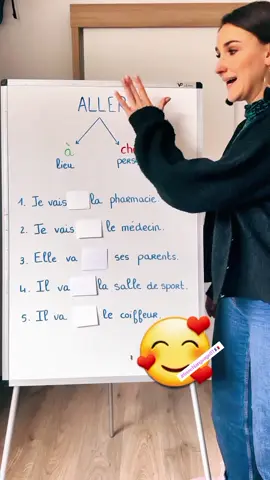 ALLER
à
lieu
1. Je vais la pharmacie.
2. Je vais le médecin.
3. Elle va ses parents.
4. Il va la salle de sport.
5. Il va le coiffeur.